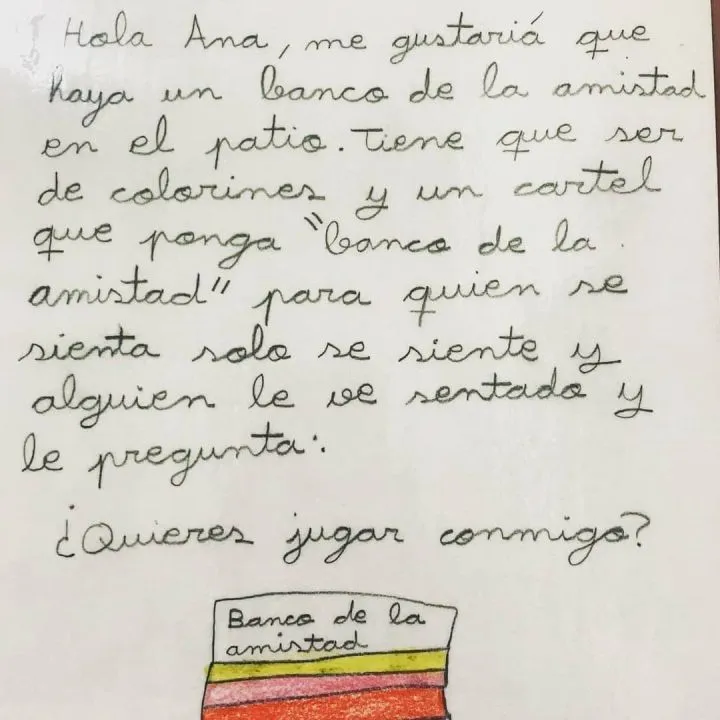 Hola Ana, me gustariá que
haya un banco de la amistad
en el patio. Tiene que ser
de colorines y un cartel
que ponga "banco de la
amistad" para quien se
sienta solo se siente y
alguien le ve sentado y
le pregunta:
¿Quieres jugar conmigo?
Banco de la
amistad